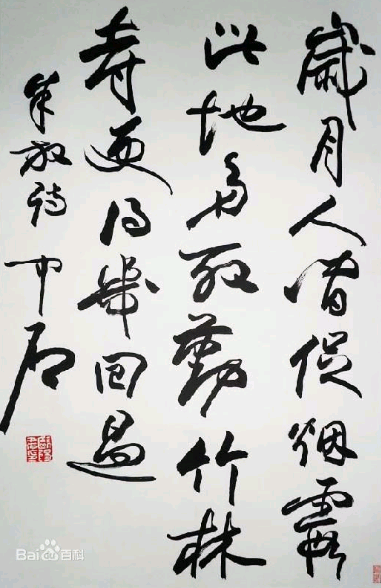 歲月人間促烟霞
此地多殷勤竹林
寺更得幾回過
朱放詩 中石
Bai百科